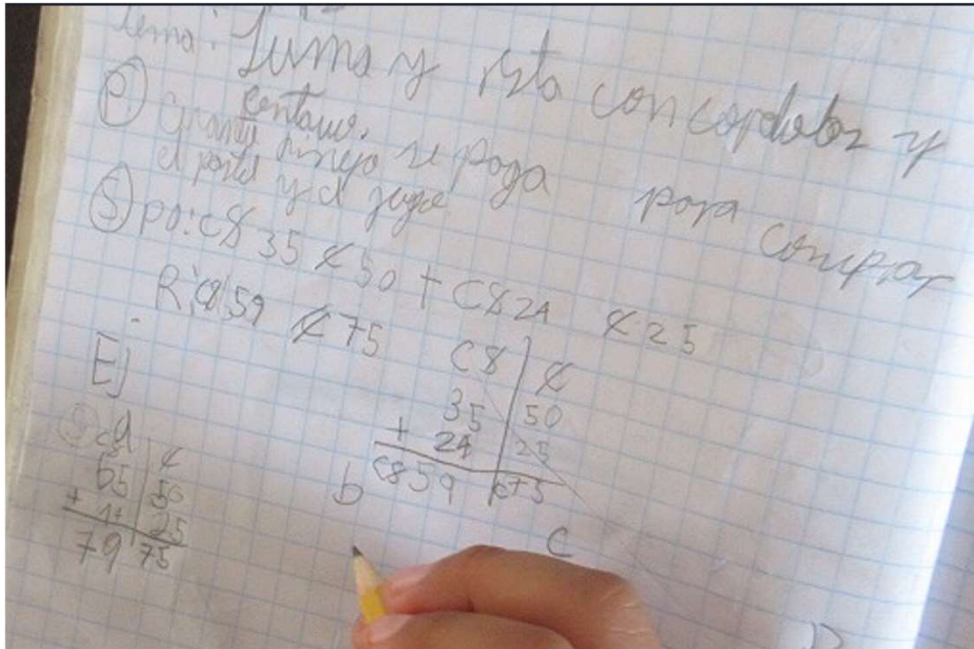 tema: Suma y resta con cordobas y
centavos.
P) Cuanto dinero se paga para comprar
el pastel y el jugo
S) po: C$ 35 ¢ 50 + C$ 24 ¢ 25
R: C$ 59 ¢ 75
C$ ¢
35 50
+ 24 25
C$ 59 ¢ 75
Ej
a
C$ ¢
65 50
+ 14 25
79 75
b
c
D